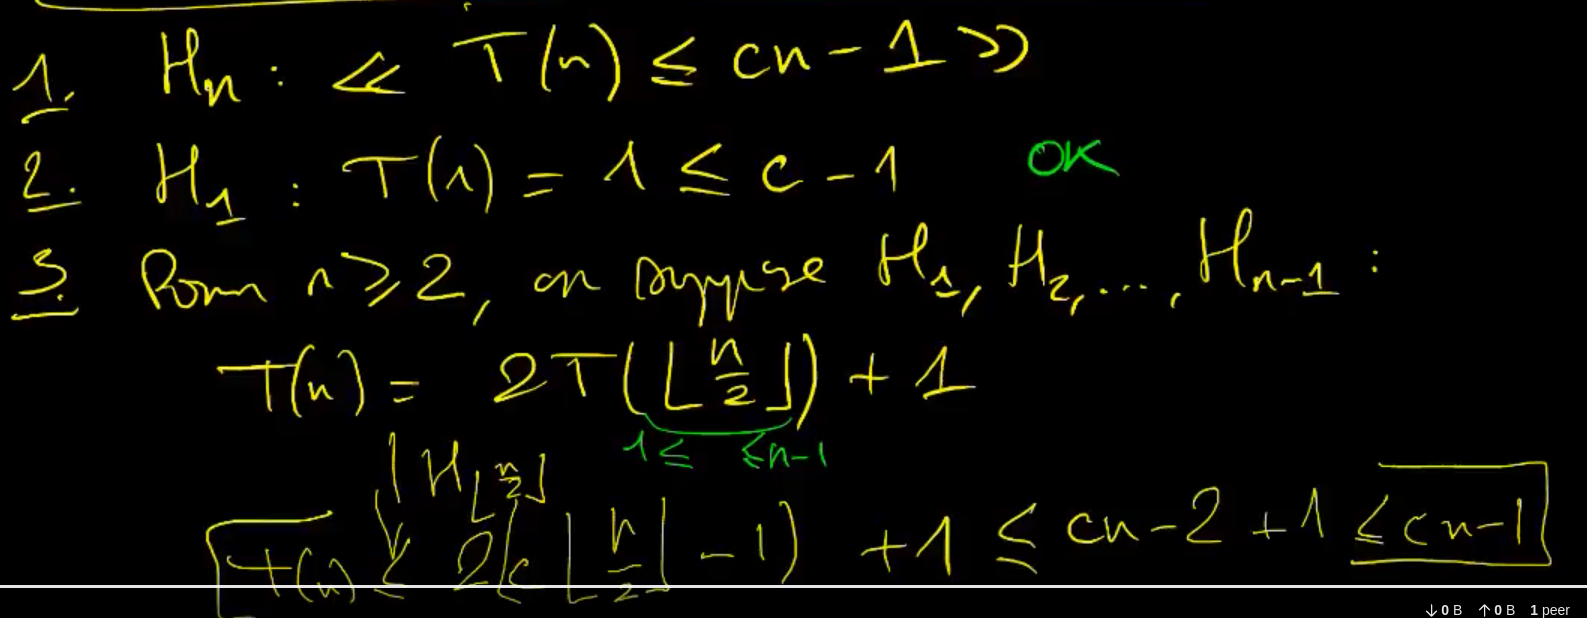 1. Hn : « T(n) ≤ cn - 1 »
2. H1 : T(1) = 1 ≤ c - 1 OK
3. Pour n ≥ 2, on suppose H1, H2, ..., Hn-1 :
T(n) = 2T(⌊n/2⌋) + 1
1 ≤ ≤ n-1
H⌊n/2⌋
T(n) ≤ 2(c⌊n/2⌋ - 1) + 1 ≤ cn - 2 + 1 ≤ cn - 1
↓ 0 B ↑ 0 B 1 peer